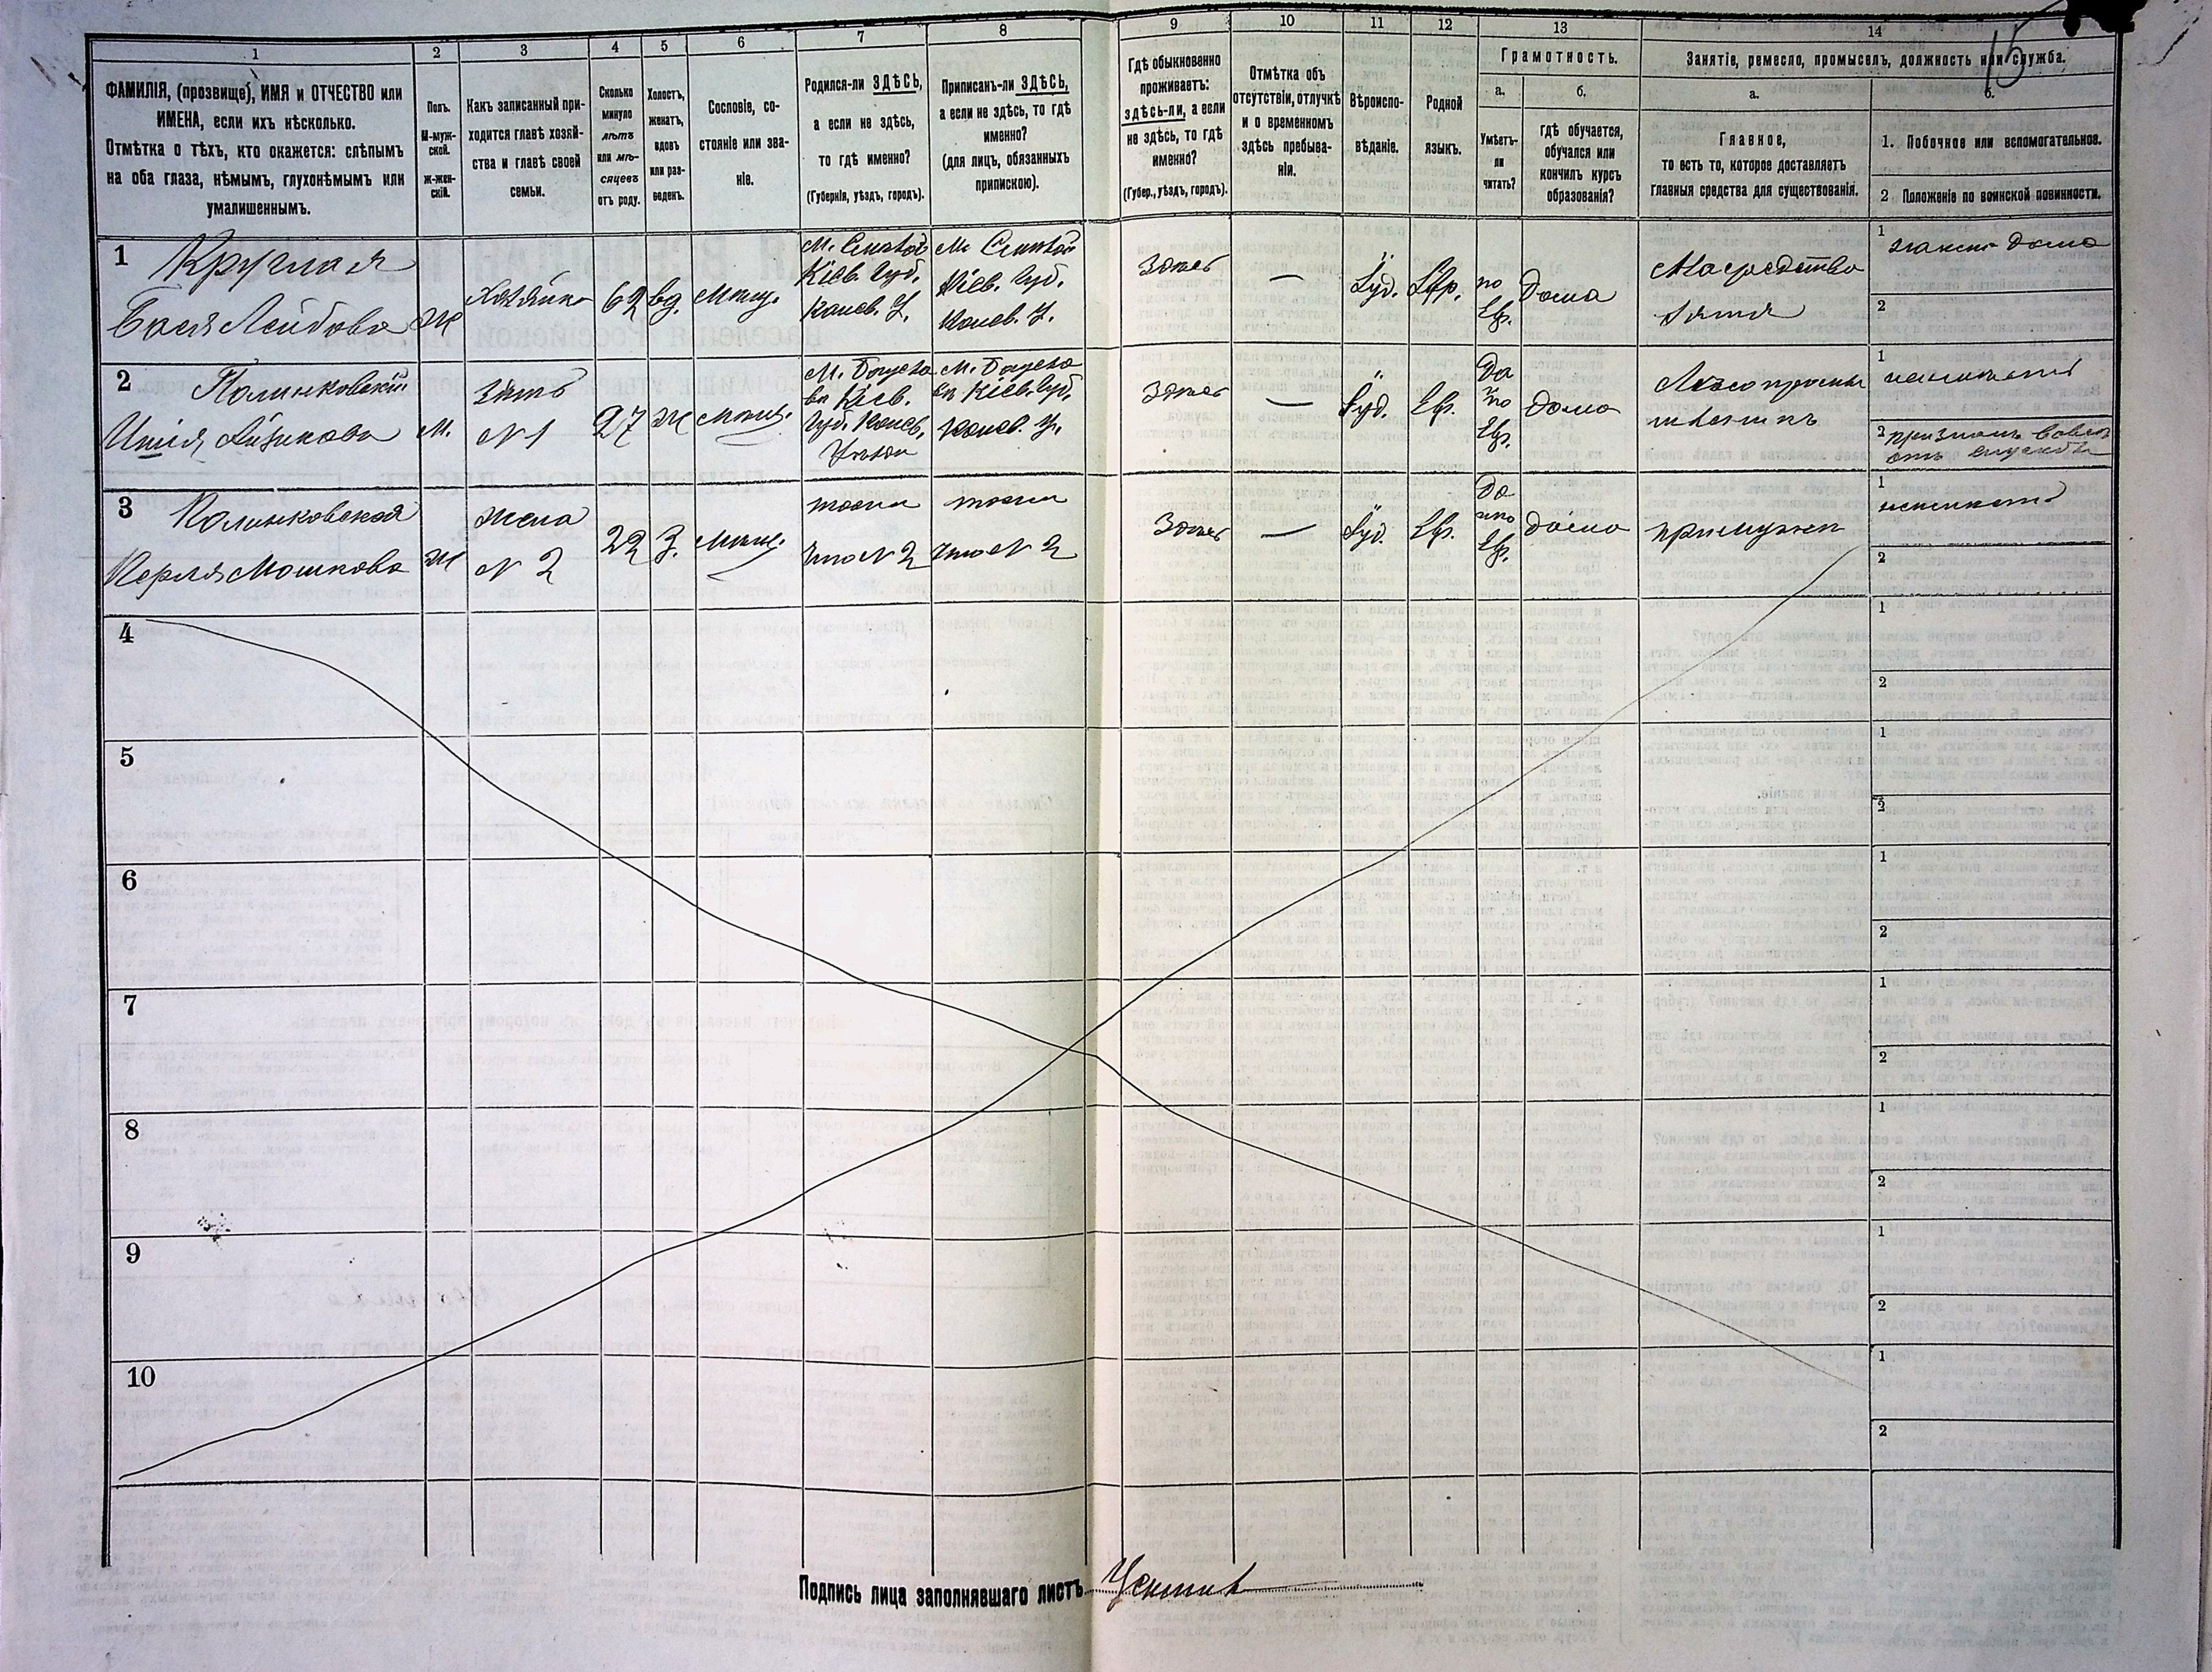 15
1
2
3
4
5
6
7
8
9
10
11
12
13
14
ФАМИЛІЯ, (прозвище), ИМЯ и ОТЧЕСТВО или
ИМЕНА, если ихъ нѣсколько.
Отмѣтка о тѣхъ, кто окажется: слѣпымъ
на оба глаза, нѣмымъ, глухонѣмымъ или
умалишеннымъ.
Полъ.
М-муж-
ской.
Ж-жен-
скій.
Какъ записанный при-
ходится главѣ хозяй-
ства и главѣ своей
семьи.
Сколько
минуло
лѣтъ
или мѣ-
сяцевъ
отъ роду.
Холостъ,
женатъ,
вдовъ
или раз-
веденъ.
Сословіе, со-
стояніе или зва-
ніе.
Родился-ли ЗДѢСЬ,
а если не здѣсь,
то гдѣ именно?
(Губернія, уѣздъ, городъ).
Приписанъ-ли ЗДѢСЬ,
а если не здѣсь, то гдѣ
именно?
(для лицъ, обязанныхъ
припискою).
Гдѣ обыкновенно
проживаетъ:
здѣсь-ли, а если
не здѣсь, то гдѣ
именно?
(Губер., уѣздъ, городъ).
Отмѣтка объ
отсутствіи, отлучкѣ
и о временномъ
здѣсь пребыва-
ніи.
Вѣроиспо-
вѣданіе.
Родной
языкъ.
Грамотность.
а.
Умѣетъ-
ли
читать?
б.
гдѣ обучается,
обучался или
кончилъ курсъ
образованія?
Занятіе, ремесло, промыселъ, должность или служба.
а.
Главное,
то есть то, которое доставляетъ
главныя средства для существованія.
б.
1. Побочное или вспомогательное.
2 Положеніе по воинской повинности.
1
Круглая
Бася Лейбова
Ж
Хозяйка
62
вд.
Мѣщ.
М.
Кіев. Губ.
Канев. У.
М.
Кіев. Губ.
Канев. У.
Здѣсь
—
Іуд.
Евр.
по
Евр.
Дома
На средства
зятя
1
дома
2
2
Полинковскій
Айзикова
М.
Зять
№ 1
27
Ж
Мѣщ.
М. Богусла
въ Кіев.
Губ. Канев.
Уѣзда
М. Богусла
въ Кіев. Губ.
Канев. У.
Здѣсь
—
Іуд.
Евр.
Да
по
Евр.
Дома
Лѣсопромы
шленникъ
1
2
3
Полинковская
Перля Мошкова
Ж
Жена
№ 2
22
З.
Мѣщ.
тоже
что № 2
тоже
что № 2
Здѣсь
—
Іуд.
Евр.
Да
по
Евр.
Дома
при мужѣ
1
2
4
1
2
5
1
2
6
1
2
7
1
2
8
1
2
9
1
2
10
1
2
Подпись лица заполнявшаго листъ